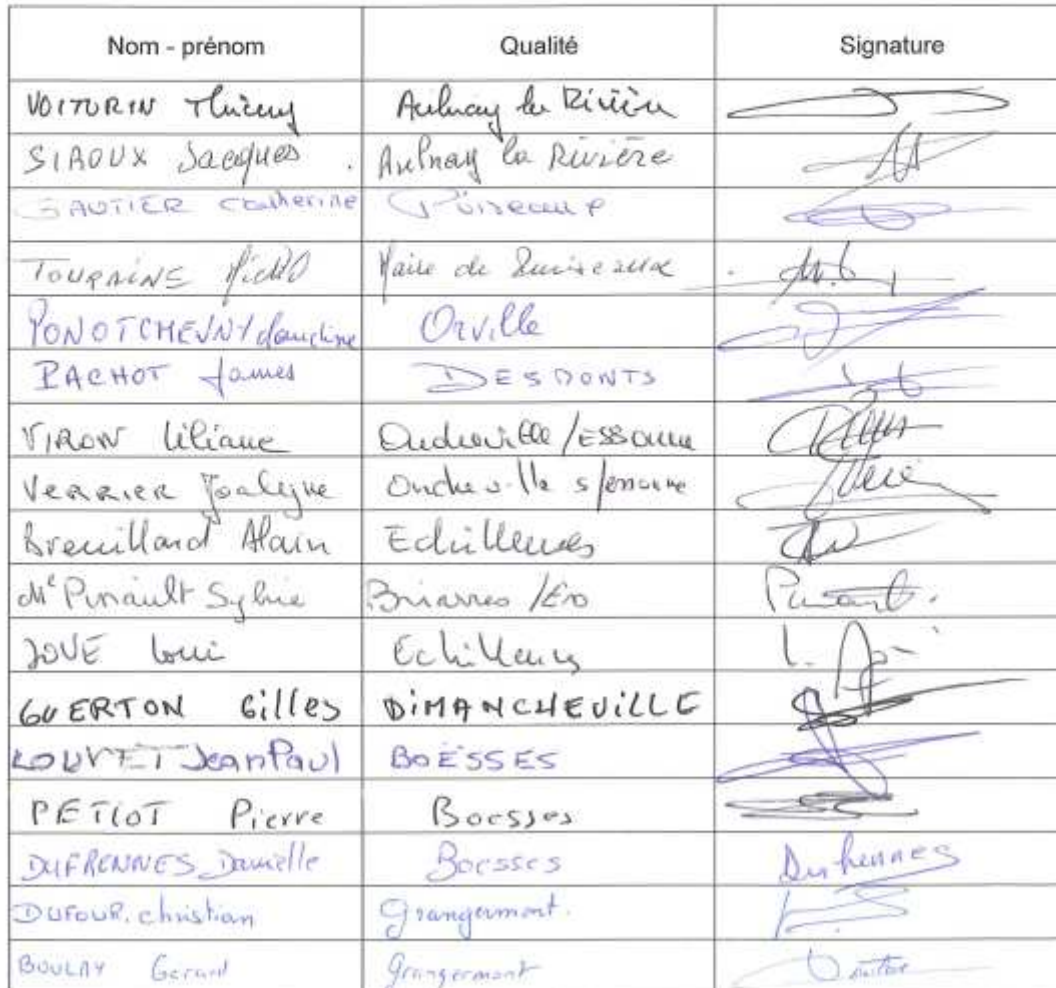 Nom - prénom Qualité Signature
VOITURIN Thierry Aulnay la Rivière
SIROUX Jacques . Aulnay la Rivière
GAUTIER Catherine Puiseaux
TOURAINE Michel Maire de Puiseaux
PONOTCHEVNY Claudine Orville
PACHOT James DESMONTS
VIRON Liliane Ondreville /ESSONNE
VERRIER Ondreville s/essonne
Breuillard Alain Echilleuses
Me Pinault Sylvie Briarres /Ess Pinault.
JOVE Louis Echilleuses
GUERTON Gilles DIMANCHEVILLE
LOUVET Jean Paul BOËSSES
PETIOT Pierre Boesses
DUFRENNES Danielle Boesses Dufrennes
DUFOUR. christian Grangermont.
BOULAY Gerard Grangermont